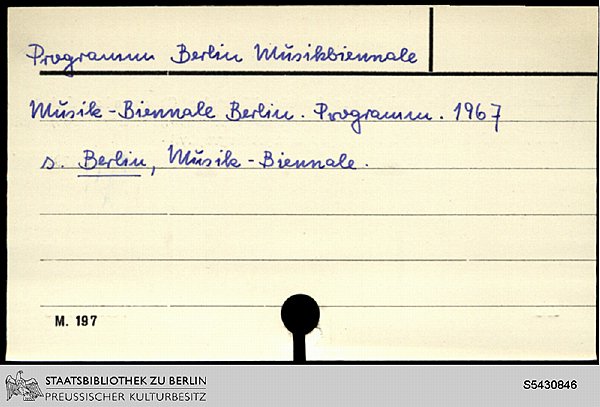 Programm Berlin Musikbiennale
Musik-Biennale Berlin. Programm. 1967
s. Berlin, Musik-Biennale.
M. 197
STAATSBIBLIOTHEK ZU BERLIN
PREUSSISCHER KULTURBESITZ
S5430846